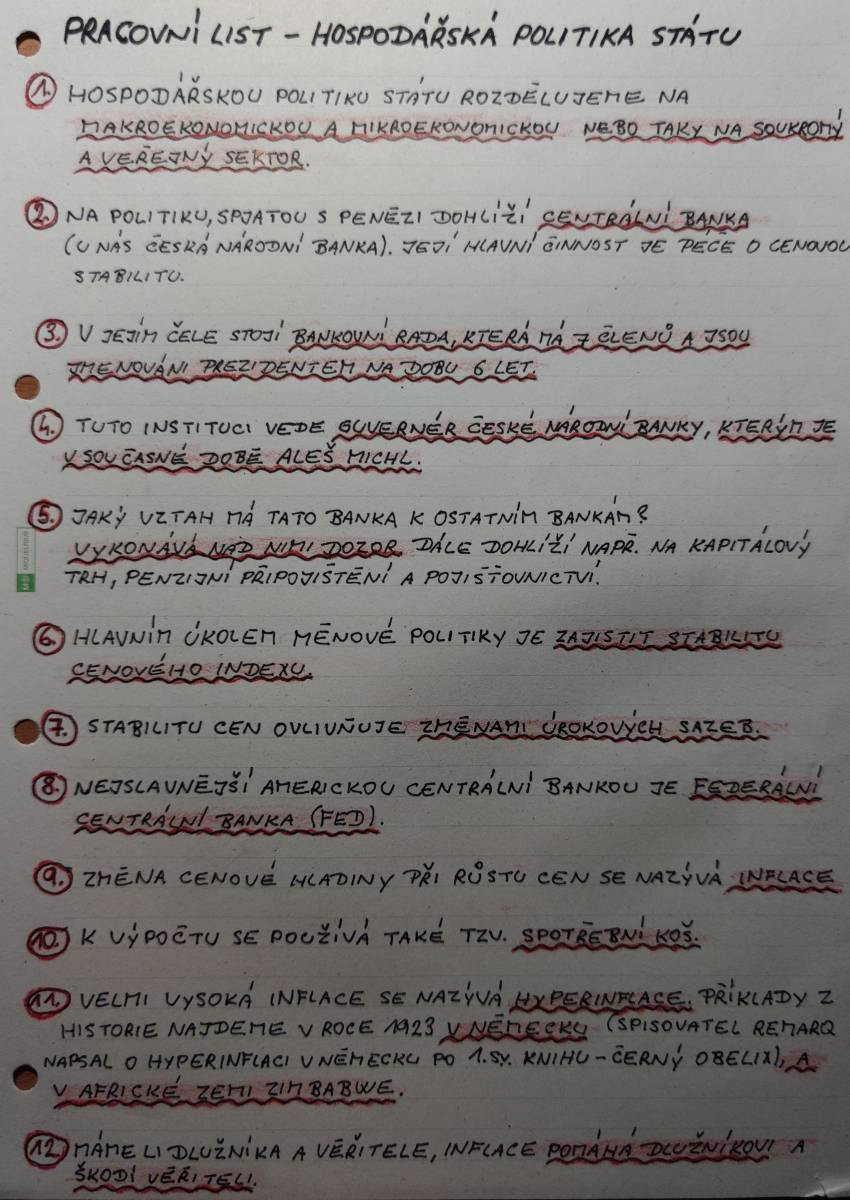 PRACOVNÍ LIST - HOSPODÁŘSKÁ POLITIKA STÁTU
1. HOSPODÁŘSKOU POLITIKU STÁTU ROZDĚLUJEME NA
MAKROEKONOMICKOU A MIKROEKONOMICKOU NEBO TAKY NA SOUKROMÝ
A VEŘEJNÝ SEKTOR.
2. NA POLITIKU, SPJATOU S PENĚZI DOHLÍŽÍ CENTRÁLNÍ BANKA
(U NÁS ČESKÁ NÁRODNÍ BANKA). JEJÍ HLAVNÍ ČINNOST JE PÉČE O CENOVOU
STABILITU.
3. V JEJÍM ČELE STOJÍ BANKOVNÍ RADA, KTERÁ MÁ 7 ČLENŮ A JSOU
JMENOVÁNI PREZIDENTEM NA DOBU 6 LET.
4. TUTO INSTITUCI VEDE GUVERNÉR ČESKÉ NÁRODNÍ BANKY, KTERÝM JE
V SOUČASNÉ DOBĚ ALEŠ MICHL.
5. JAKÝ VZTAH MÁ TATO BANKA K OSTATNÍM BANKÁM?
VYKONÁVÁ NAD NIMI DOZOR. DÁLE DOHLÍŽÍ NAPŘ. NA KAPITÁLOVÝ
TRH, PENZIJNÍ PŘIPOJIŠTĚNÍ A POJIŠŤOVNICTVÍ.
6. HLAVNÍM ÚKOLEM MĚNOVÉ POLITIKY JE ZAJISTIT STABILITU
CENOVÉHO INDEXU.
7. STABILITU CEN OVLIVŇUJE ZMĚNAMI ÚROKOVÝCH SAZEB.
8. NEJSLAVNĚJŠÍ AMERICKOU CENTRÁLNÍ BANKOU JE FEDERÁLNÍ
CENTRÁLNÍ BANKA (FED).
9. ZMĚNA CENOVÉ HLADINY PŘI RŮSTU CEN SE NAZÝVÁ INFLACE
10. K VÝPOČTU SE POUŽÍVÁ TAKÉ TZV. SPOTŘEBNÍ KOŠ.
11. VELMI VYSOKÁ INFLACE SE NAZÝVÁ HYPERINFLACE. PŘÍKLADY Z
HISTORIE NAJDEME V ROCE 1923 V NĚMECKU (SPISOVATEL REMARQ
NAPSAL O HYPERINFLACI V NĚMECKU PO 1.SV. KNIHU - ČERNÝ OBELIX), A
V AFRICKÉ ZEMI ZIMBABWE.
12. MÁME LI DLUŽNÍKA A VĚŘITELE, INFLACE POMÁHÁ DLUŽNÍKOVI A
ŠKODÍ VĚŘITELI.